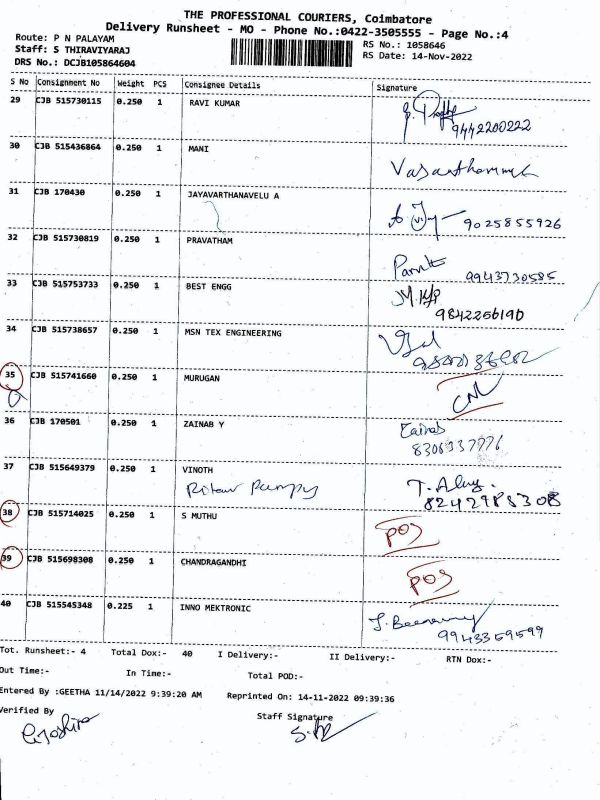 THE PROFESSIONAL COURIERS, Coimbatore
Delivery Runsheet - MO - Phone No.:0422-3505555 - Page No.:4
Route: P N PALAYAM
Staff: S THIRAVIYARAJ
DRS No.: DCJB105864604
RS No.: 1058646
RS Date: 14-Nov-2022
S No Consignment No Weight PCS Consignee Details Signature
29 CJB 515730115 0.250 1 RAVI KUMAR
9442200222
30 CJB 515436864 0.250 1 MANI
31 CJB 170430 0.250 1 JAYAVARTHANAVELU A
9025855926
32 CJB 515730819 0.250 1 PRAVATHAM
9943730585
33 CJB 515753733 0.250 1 BEST ENGG
9842256190
34 CJB 515738657 0.250 1 MSN TEX ENGINEERING
35 CJB 515741660 0.250 1 MURUGAN
36 CJB 170501 0.250 1 ZAINAB Y
Zainab
37 CJB 515649379 0.250 1 VINOTH
38 CJB 515714025 0.250 1 S MUTHU
POS
39 CJB 515698308 0.250 1 CHANDRAGANDHI
POS
40 CJB 515545348 0.225 1 INNO MEKTRONIC
9943359599
Tot. Runsheet:- 4 Total Dox:- 40 I Delivery:- II Delivery:- RTN Dox:-
Out Time:- In Time:- Total POD:-
Entered By :GEETHA 11/14/2022 9:39:20 AM Reprinted On: 14-11-2022 09:39:36
Verified By
Staff Signature